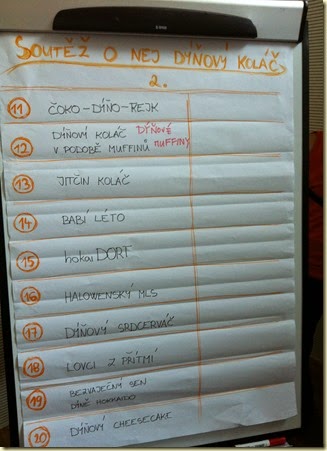 SOUTĚŽ O NEJ DÝŇOVÝ KOLÁČ
2.
11 ČOKO-DÝŇO-REJK
12 DÝŇOVÝ KOLÁČ DÝŇOVÉ
V PODOBĚ MUFFINŮ MUFFINY
13 JITČIN KOLÁČ
14 BABÍ LÉTO
15 hokai DORT
16 HALOWENSKÝ MLS
17 DÝŇOVÝ SRDCERVÁČ
18 LOVCI Z PŘÍTMÍ
19 BEZVAJEČNÝ SEN
DÝNĚ HOKKAIDO
20 DÝŇOVÝ CHEESECAKE